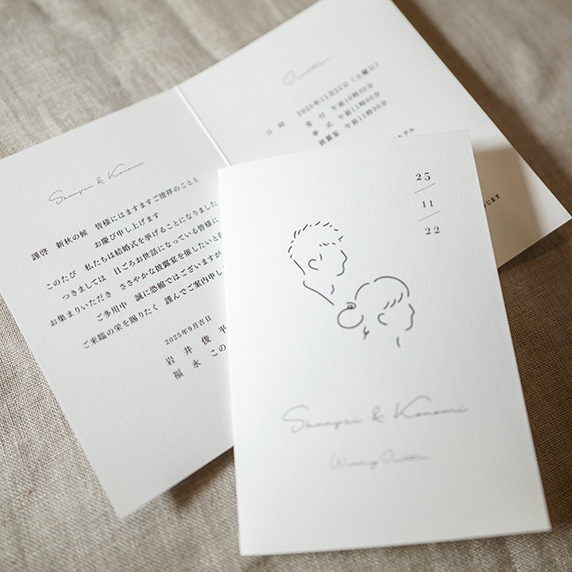 Shunpei & Konomi
謹啓 新秋の候 皆様にはますますご清祥のことと
お慶び申し上げます
このたび 私たちは結婚式を挙げることになりました
つきましては 日ごろお世話になっている皆様に
お集まりいただき ささやかな披露宴を催したいと
ご多用中 誠に恐縮ではございますが
ご来臨の栄を賜りたく 謹んでご案内申し
2025年9月吉日
岩井 俊平
福永 この
Invitation
日時 2025年11月22日(土曜日)
受付 午前10時30分
挙式 午前11時00分
披露宴 午前11時30分
25
11
22
Shunpei & Konomi
Wedding Invitation